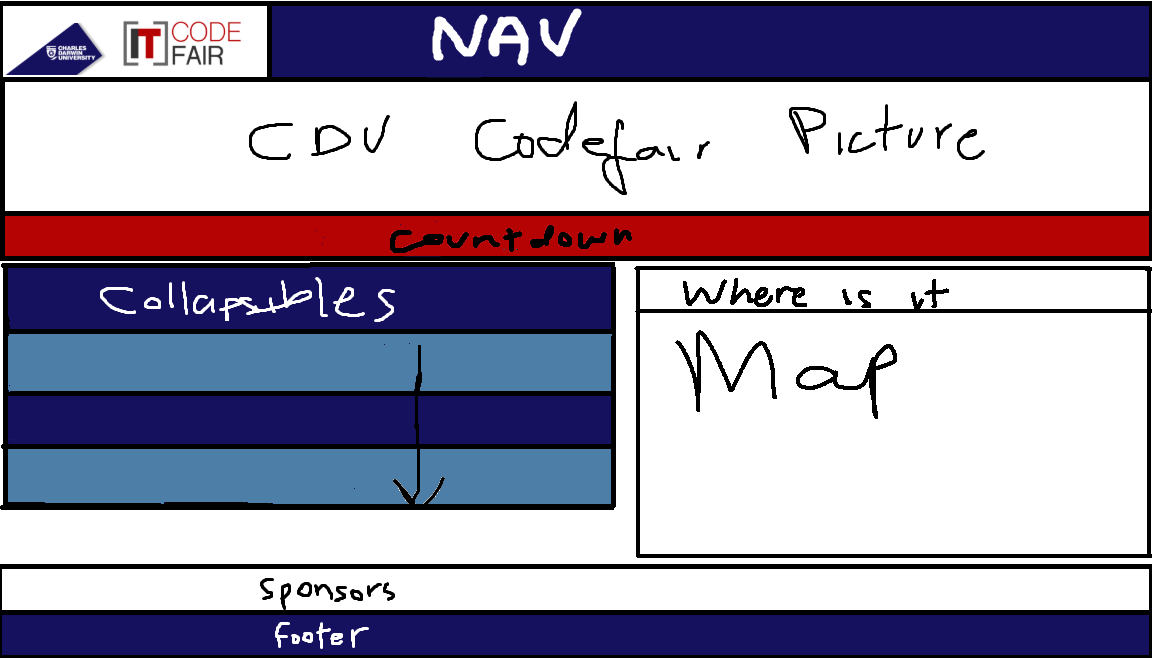 CHARLES
DARWIN
UNIVERSITY
[IT] CODE
FAIR
NAV
CDU Codefair Picture
Countdown
Collapsibles
Where is it
Map
Sponsors
footer